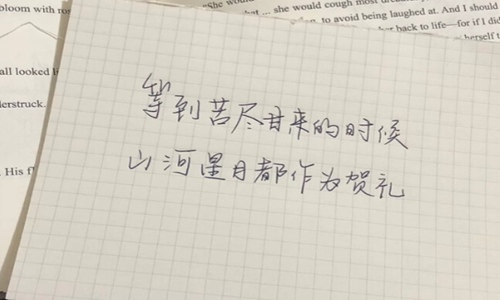 "She wou
bloom with ro
she would cough most
to avoid being laughed at. And I should
back to life—for if I di
herself t
all looked l
erstruck.
. His f
等到苦尽甘来的时候
山河星月都作为贺礼